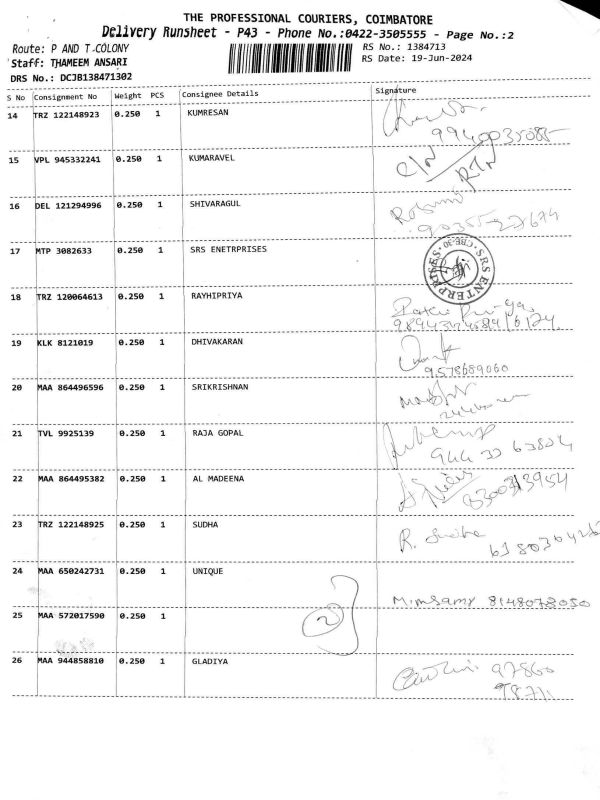 THE PROFESSIONAL COURIERS, COIMBATORE
Delivery Runsheet - P43 - Phone No.:0422-3505555 - Page No.:2
Route: P AND T COLONY
RS No.: 1384713
Staff: THAMEEM ANSARI
RS Date: 19-Jun-2024
DRS No.: DCJB138471302
S No Consignment No Weight PCS Consignee Details Signature
14 TRZ 122148923 0.250 1 KUMRESAN
15 VPL 945332241 0.250 1 KUMARAVEL
C/N RTN
16 DEL 121294996 0.250 1 SHIVARAGUL
17 MTP 3082633 0.250 1 SRS ENETRPRISES
SRS ENTERPRISES CBE-30
18 TRZ 120064613 0.250 1 RAYHIPRIYA
19 KLK 8121019 0.250 1 DHIVAKARAN
9578689060
20 MAA 864496596 0.250 1 SRIKRISHNAN
21 TVL 9925139 0.250 1 RAJA GOPAL
22 MAA 864495382 0.250 1 AL MADEENA
23 TRZ 122148925 0.250 1 SUDHA
24 MAA 650242731 0.250 1 UNIQUE
8148078050
25 MAA 572017590 0.250 1
2
26 MAA 944858810 0.250 1 GLADIYA
97860